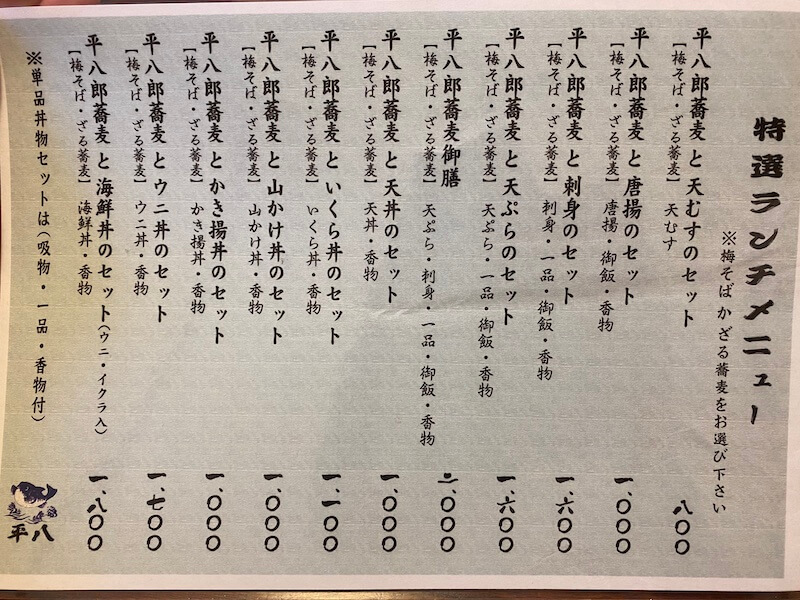 特選ランチメニュー
※梅そばかざる蕎麦をお選び下さい
平八郎蕎麦と天むすのセット 八〇〇
【梅そば・ざる蕎麦】天むす
平八郎蕎麦と唐揚のセット 一、〇〇〇
【梅そば・ざる蕎麦】唐揚・御飯・香物
平八郎蕎麦と刺身のセット 一、六〇〇
【梅そば・ざる蕎麦】刺身・一品・御飯・香物
平八郎蕎麦と天ぷらのセット 一、六〇〇
【梅そば・ざる蕎麦】天ぷら・一品・御飯・香物
平八郎蕎麦御膳 二、〇〇〇
【梅そば・ざる蕎麦】天ぷら・刺身・一品・御飯・香物
平八郎蕎麦と天丼のセット 一、〇〇〇
【梅そば・ざる蕎麦】天丼・香物
平八郎蕎麦といくら丼のセット 一、一〇〇
【梅そば・ざる蕎麦】いくら丼・香物
平八郎蕎麦と山かけ丼のセット 一、〇〇〇
【梅そば・ざる蕎麦】山かけ丼・香物
平八郎蕎麦とかき揚丼のセット 一、〇〇〇
【梅そば・ざる蕎麦】かき揚丼・香物
平八郎蕎麦とウニ丼のセット 一、七〇〇
【梅そば・ざる蕎麦】ウニ丼・香物
平八郎蕎麦と海鮮丼のセット(ウニ・イクラ入) 一、八〇〇
【梅そば・ざる蕎麦】海鮮丼・香物
※単品丼物セットは(吸物・一品・香物付)
平八